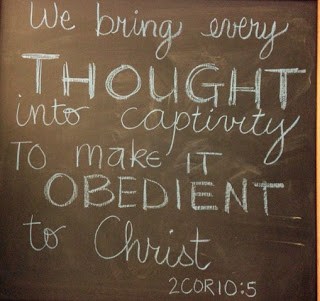 We bring every
THOUGHT
into captivity
TO make IT
OBEDIENT
to Christ
2COR10:5